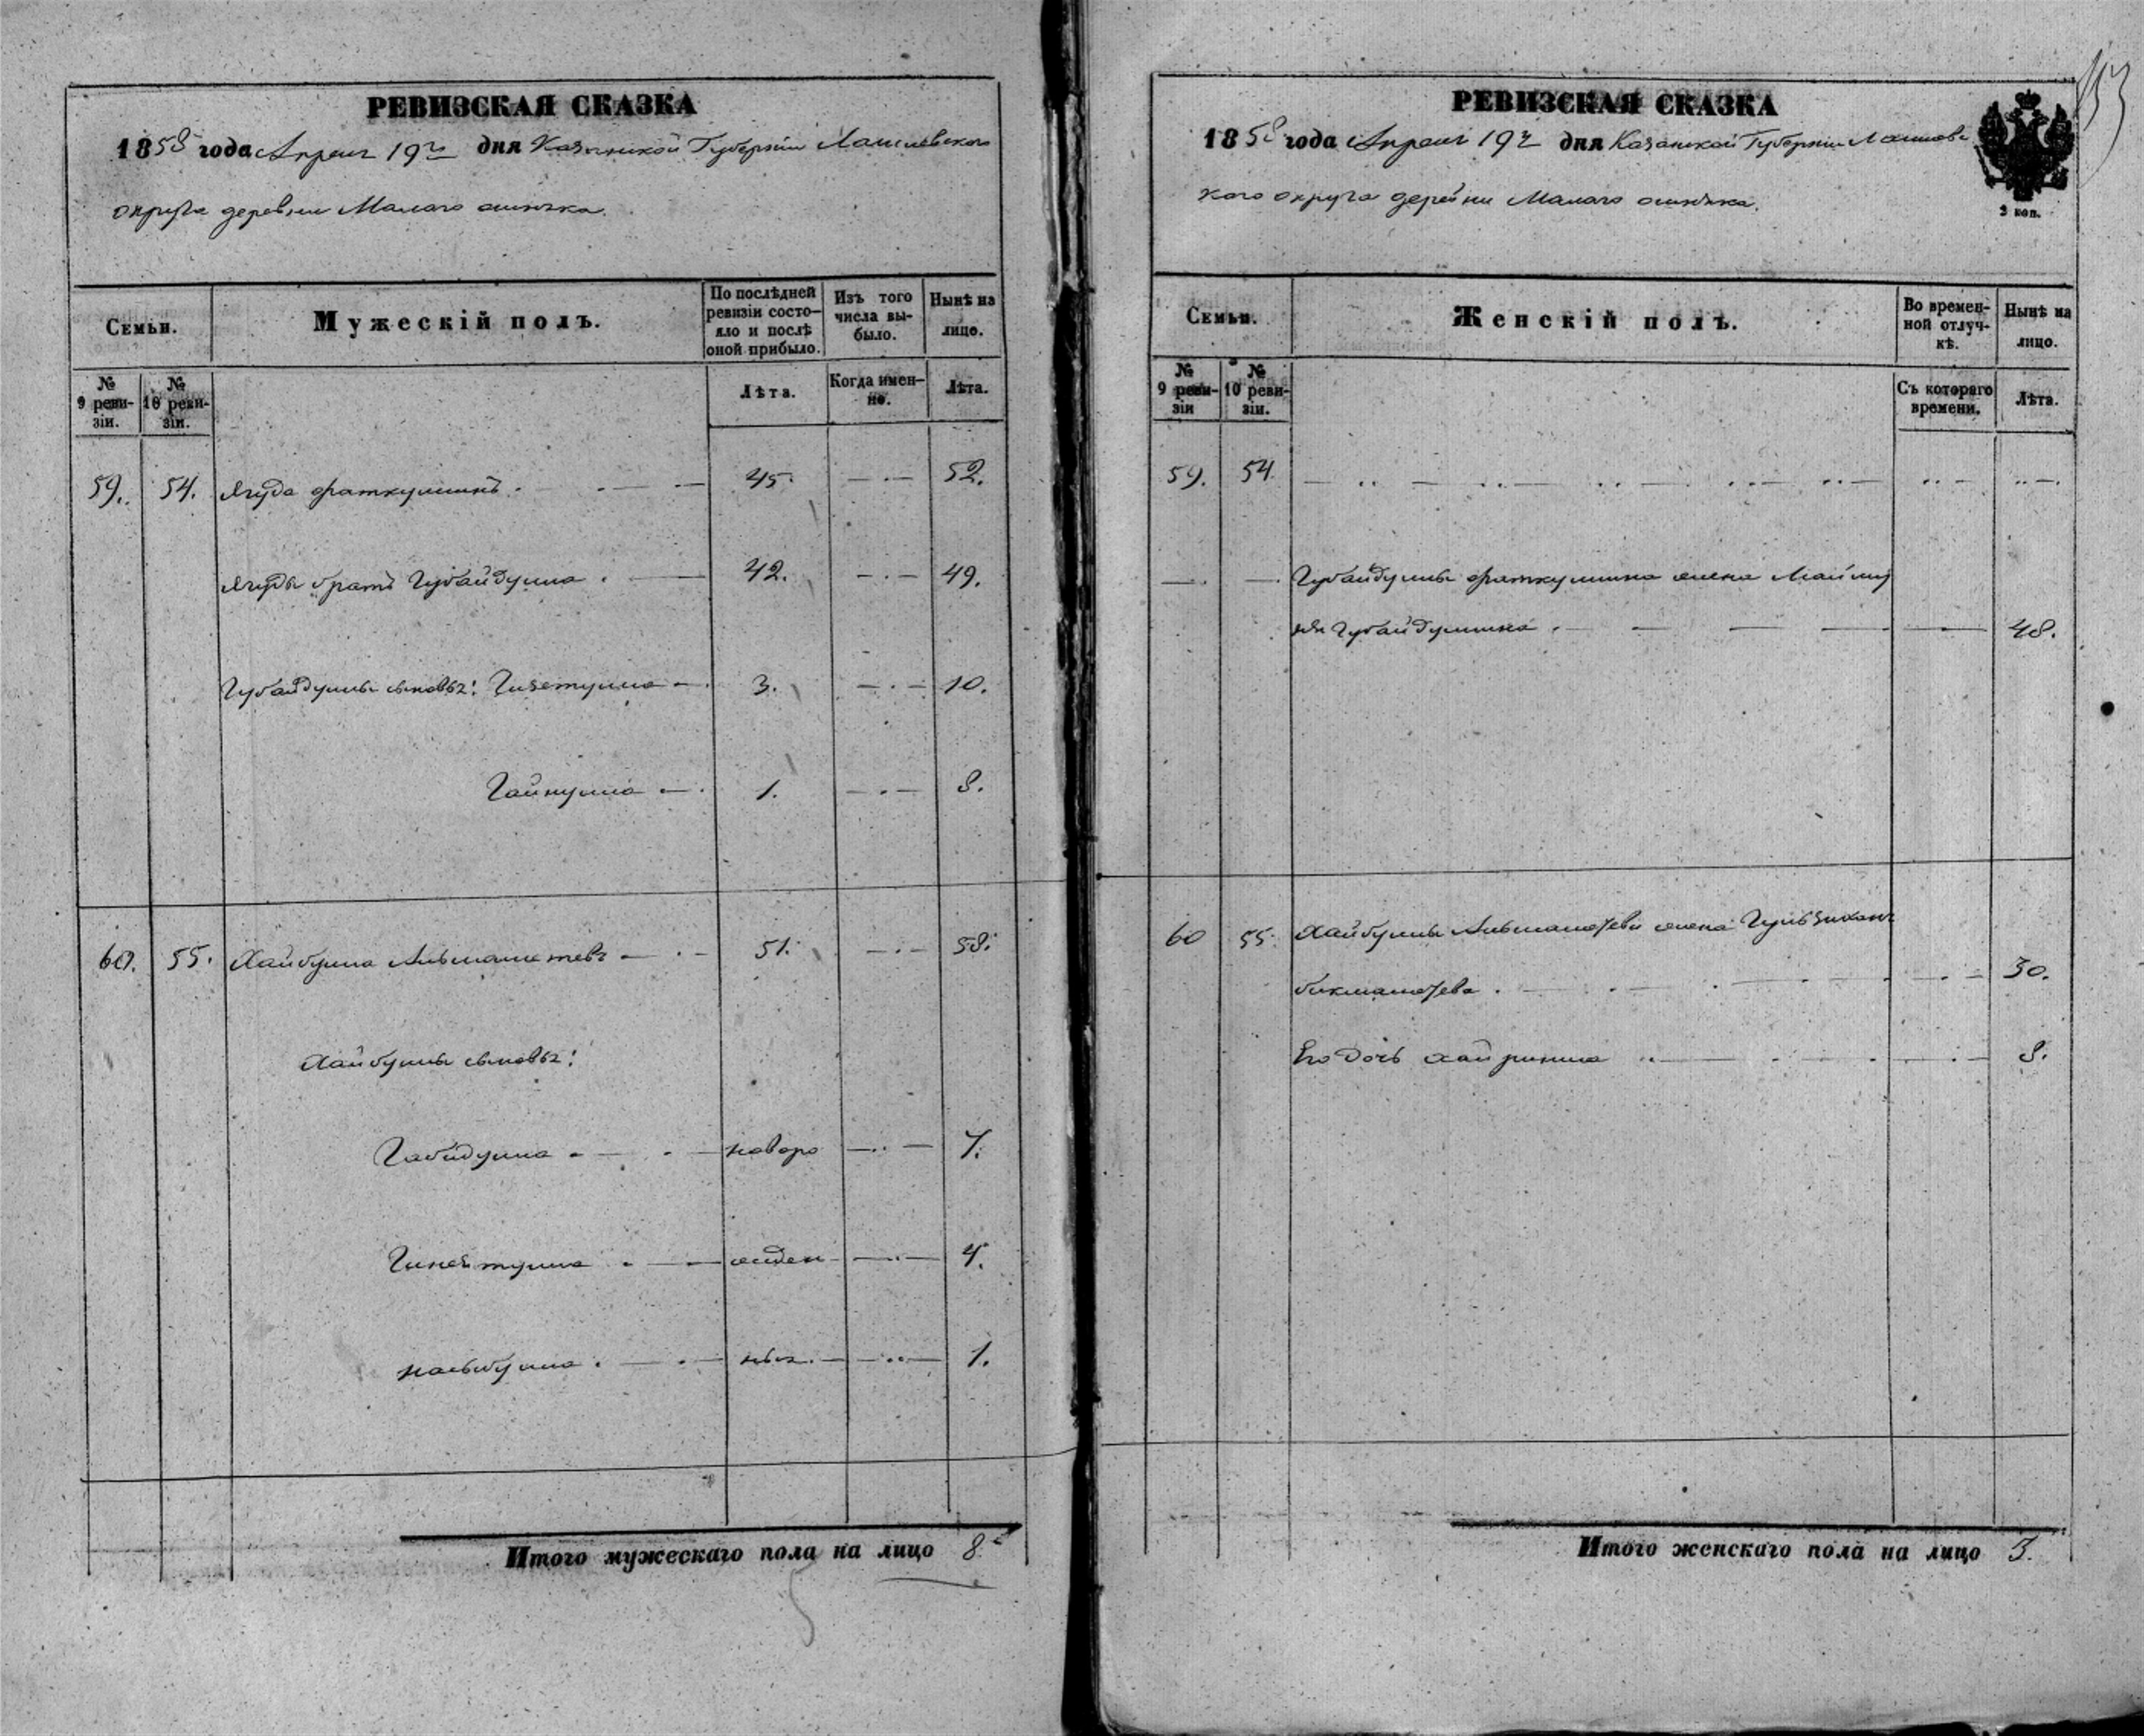 РЕВИЗСКАЯ СКАЗКА
1858 года Апреля 19го дня Казанской Губернии Лаишевского
округа деревни Малаго
Семьи.
Мужескій полъ.
По послѣдней ревизіи состо-
яло и послѣ
оной прибыло.
Изъ того
числа вы-
было.
Нынѣ на
лицо.
№
9 реви-
зіи.
№
10 реви-
зіи.
Лѣта.
Когда имен-
но.
Лѣта.
59. 54. Ягуда Фаткуллинъ 45. 52.
Ягуды братъ Губайдулла 42. 49.
Губайдуллы сыновья: Гизетулла 3. 10.
Гайнулла 1. 8.
60. 55. Хайбулла Альмашетевъ 51. 58.
Хайбуллы сыновья:
Габидулла новоро 7.
Гинеятулла жден 4.
Насыбулла ныя. 1.
Итого мужескаго пола на лицо 8.
РЕВИЗСКАЯ СКАЗКА
1858 года Апреля 19го дня Казанской Губернии Лаишевс
кого округа деревни Малаго
2 коп.
Семьи.
Женскій полъ.
Во времен-
ной отлуч-
кѣ.
Нынѣ на
лицо.
№
9 реви-
зіи
№
10 реви-
зіи.
Съ котораго
времени.
Лѣта.
59. 54.
Губайдуллы Фаткуллина жена Маймy
на Губайдуллина 48.
60 55. Хайбуллы Альмашетева жена Гульзихан
бикмашетева 30.
Его дочь Хайриниса 8.
Итого женскаго пола на лицо 3.